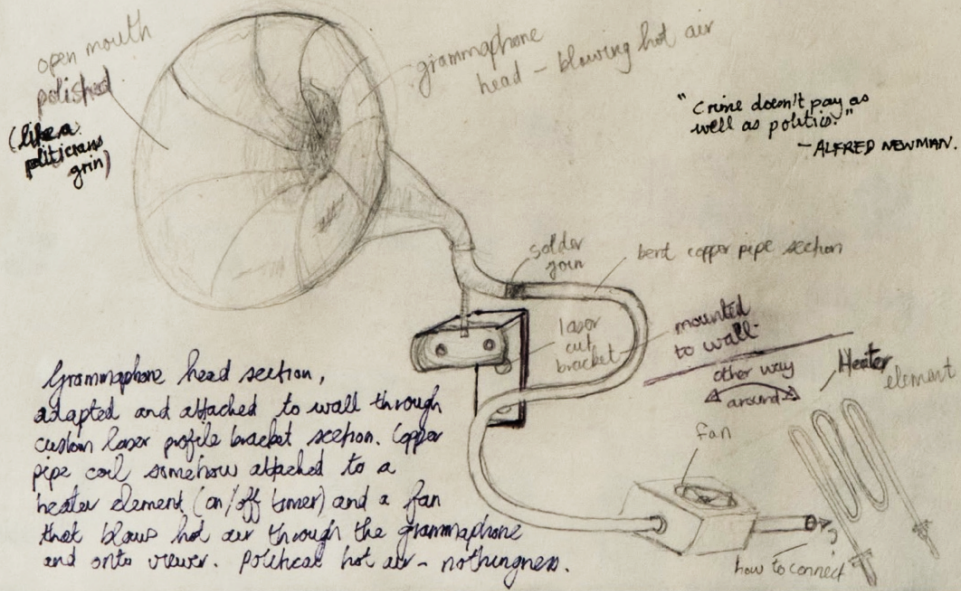 open mouth
polished
(like a
politicians
grin)
grammaphone
head - blowing hot air
"Crime doesn't pay as
well as politics."
- ALFRED NEWMAN.
solder
join
bent copper pipe section
laser
cut
bracket
mounted
to wall
other way
around
Heater
element
fan
how to connect
?
Grammaphone head section,
adapted and attached to wall through
custom laser profile bracket section. Copper
pipe coil somehow attached to a
heater element (on/off timer) and a fan
that blows hot air through the grammaphone
and onto viewer. Political hot air - nothingness.